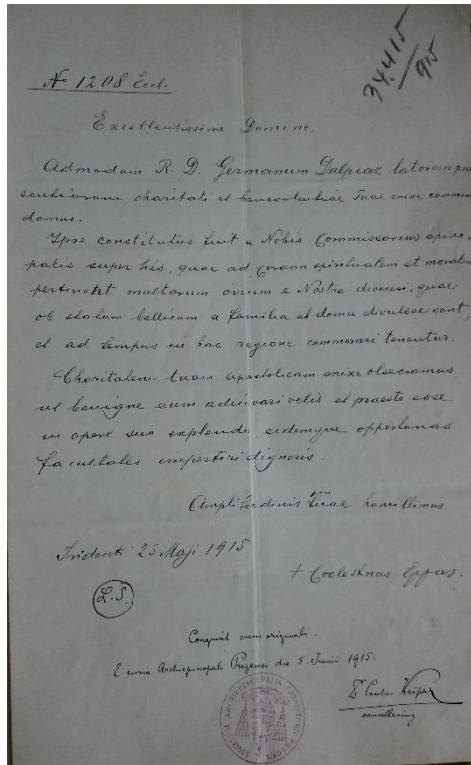 34.415
95
No 1208 Eccl.
Excellentissime Domine.
Admodum R. D. Germanum Dalpiaz latorem prae
sentiarum charitati et benevolentiae Tuae enixe commen
damus.
Ipse constitutus fuit a Nobis Commissarius episco
palis super his, quae ad curam spiritualem et moralem
pertinent multarum ovium e Nostra dioecesi, quae
ob statum bellicum a familia et domu divulsae sunt,
et ad tempus in hac regione commorari tenentur.
Charitatem tuam apostolicam enixe obsecramus
ut benigne eum adiuvari velis et praesto esse
in opere suo explendo eidemque opportunas
facultates impertiri digneris.
Amplitudinis Tuae humillimus
Tridenti 25 Maji 1915
+ Coelestinus Eppus.
L. S.
Congruit cum originali.
E curia Archiepiscopali Pragensi die 5. Junii 1915.
cancellarius